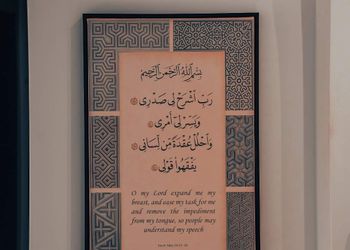 بِسْمِ اللَّهِ الرَّحْمَٰنِ الرَّحِيمِ
رَبِّ اشْرَحْ لِي صَدْرِي
وَيَسِّرْ لِي أَمْرِي
وَاحْلُلْ عُقْدَةً مِّن لِّسَانِي
يَفْقَهُوا قَوْلِي
O my Lord expand me my
breast, and ease my task for me
and remove the impediment
from my tongue, so people may
understand my speech